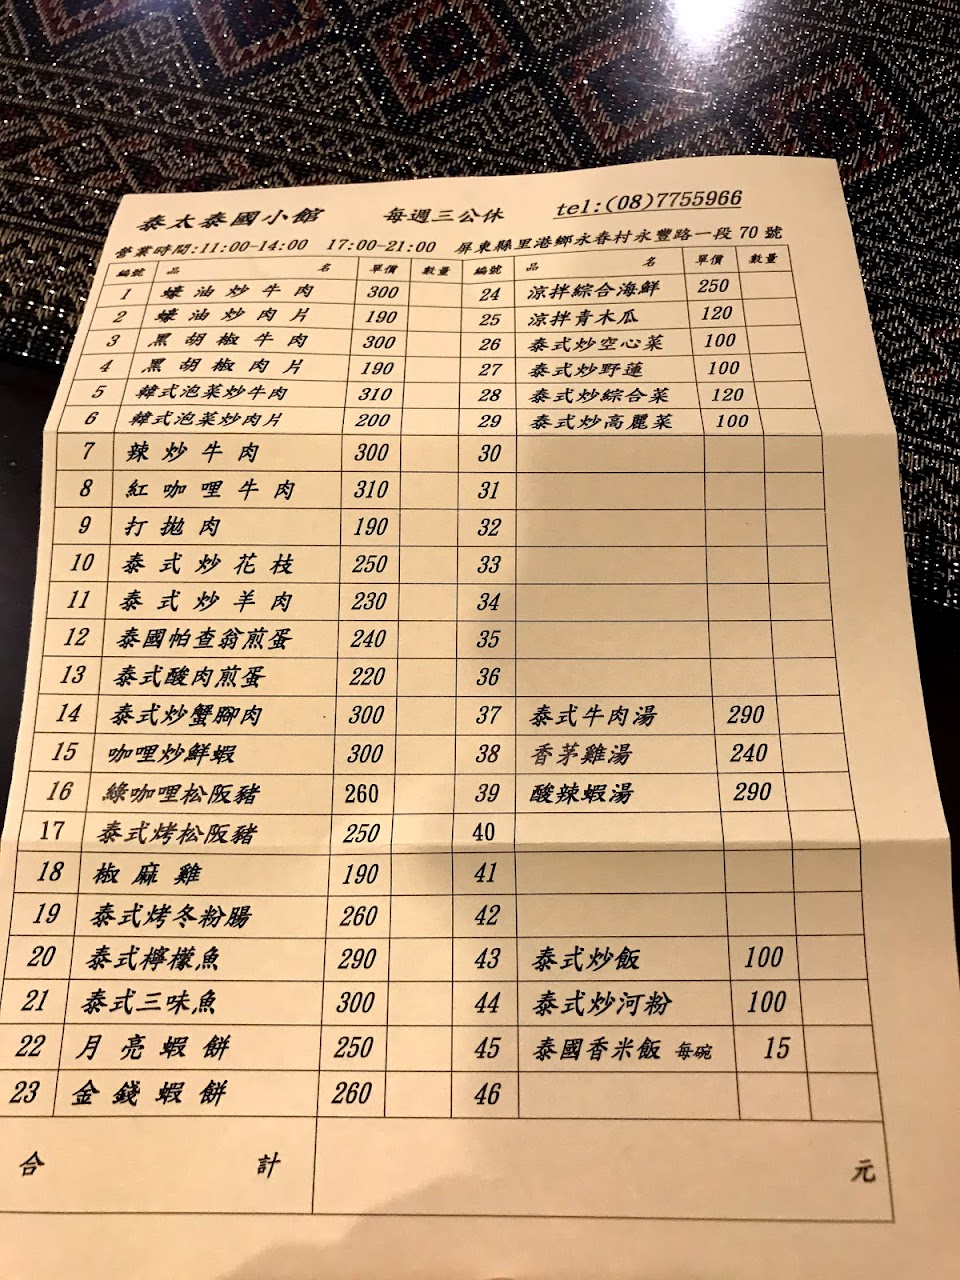 泰太泰國小館 每週三公休 tel:(08)7755966
營業時間:11:00-14:00 17:00-21:00 屏東縣里港鄉永春村永豐路一段 70 號
編號 品名 單價 數量 編號 品名 單價 數量
1 蠔油炒牛肉 300 24 涼拌綜合海鮮 250
2 蠔油炒肉片 190 25 涼拌青木瓜 120
3 黑胡椒牛肉 300 26 泰式炒空心菜 100
4 黑胡椒肉片 190 27 泰式炒野蓮 100
5 韓式泡菜炒牛肉 310 28 泰式炒綜合菜 120
6 韓式泡菜炒肉片 200 29 泰式炒高麗菜 100
7 辣炒牛肉 300 30
8 紅咖哩牛肉 310 31
9 打拋肉 190 32
10 泰式炒花枝 250 33
11 泰式炒羊肉 230 34
12 泰國帕查翁煎蛋 240 35
13 泰式酸肉煎蛋 220 36
14 泰式炒蟹腳肉 300 37 泰式牛肉湯 290
15 咖哩炒鮮蝦 300 38 香茅雞湯 240
16 綠咖哩松阪豬 260 39 酸辣蝦湯 290
17 泰式烤松阪豬 250 40
18 椒麻雞 190 41
19 泰式烤冬粉腸 260 42
20 泰式檸檬魚 290 43 泰式炒飯 100
21 泰式三味魚 300 44 泰式炒河粉 100
22 月亮蝦餅 250 45 泰國香米飯 每碗 15
23 金錢蝦餅 260 46
合計 元